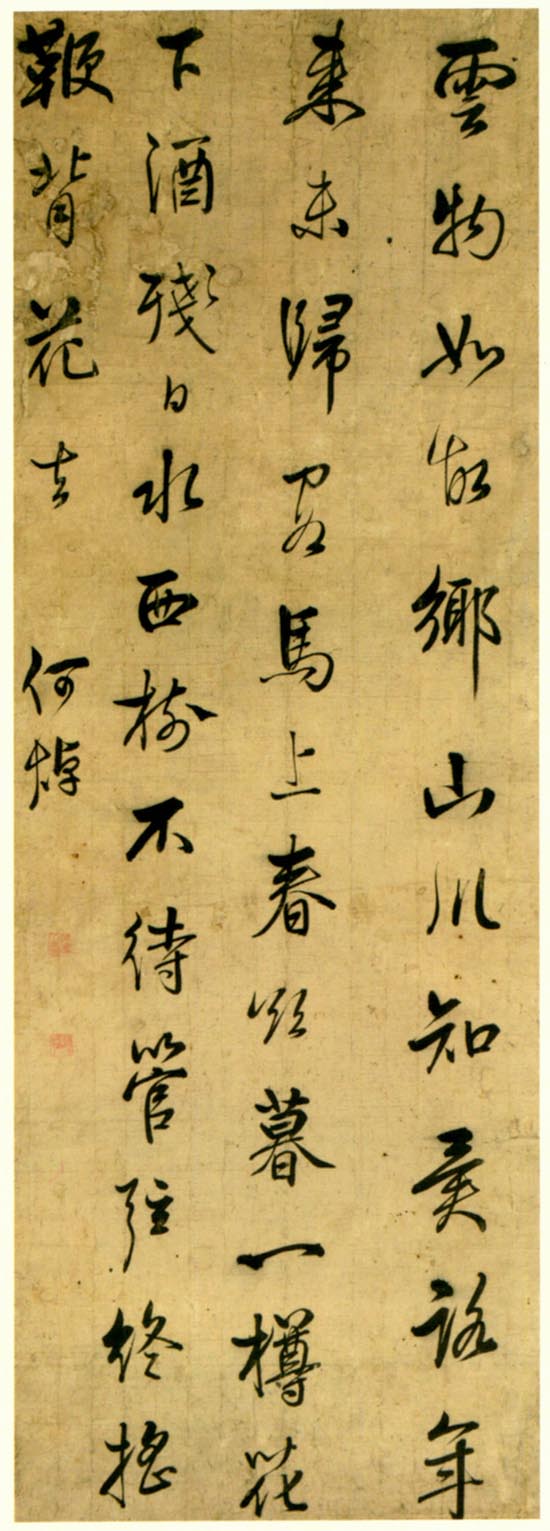 雲物如故鄉山川知異路年
來未歸客馬上春欲暮一樽花
下酒殘日水西樹不待管弦終搖
鞭背花去 何焯